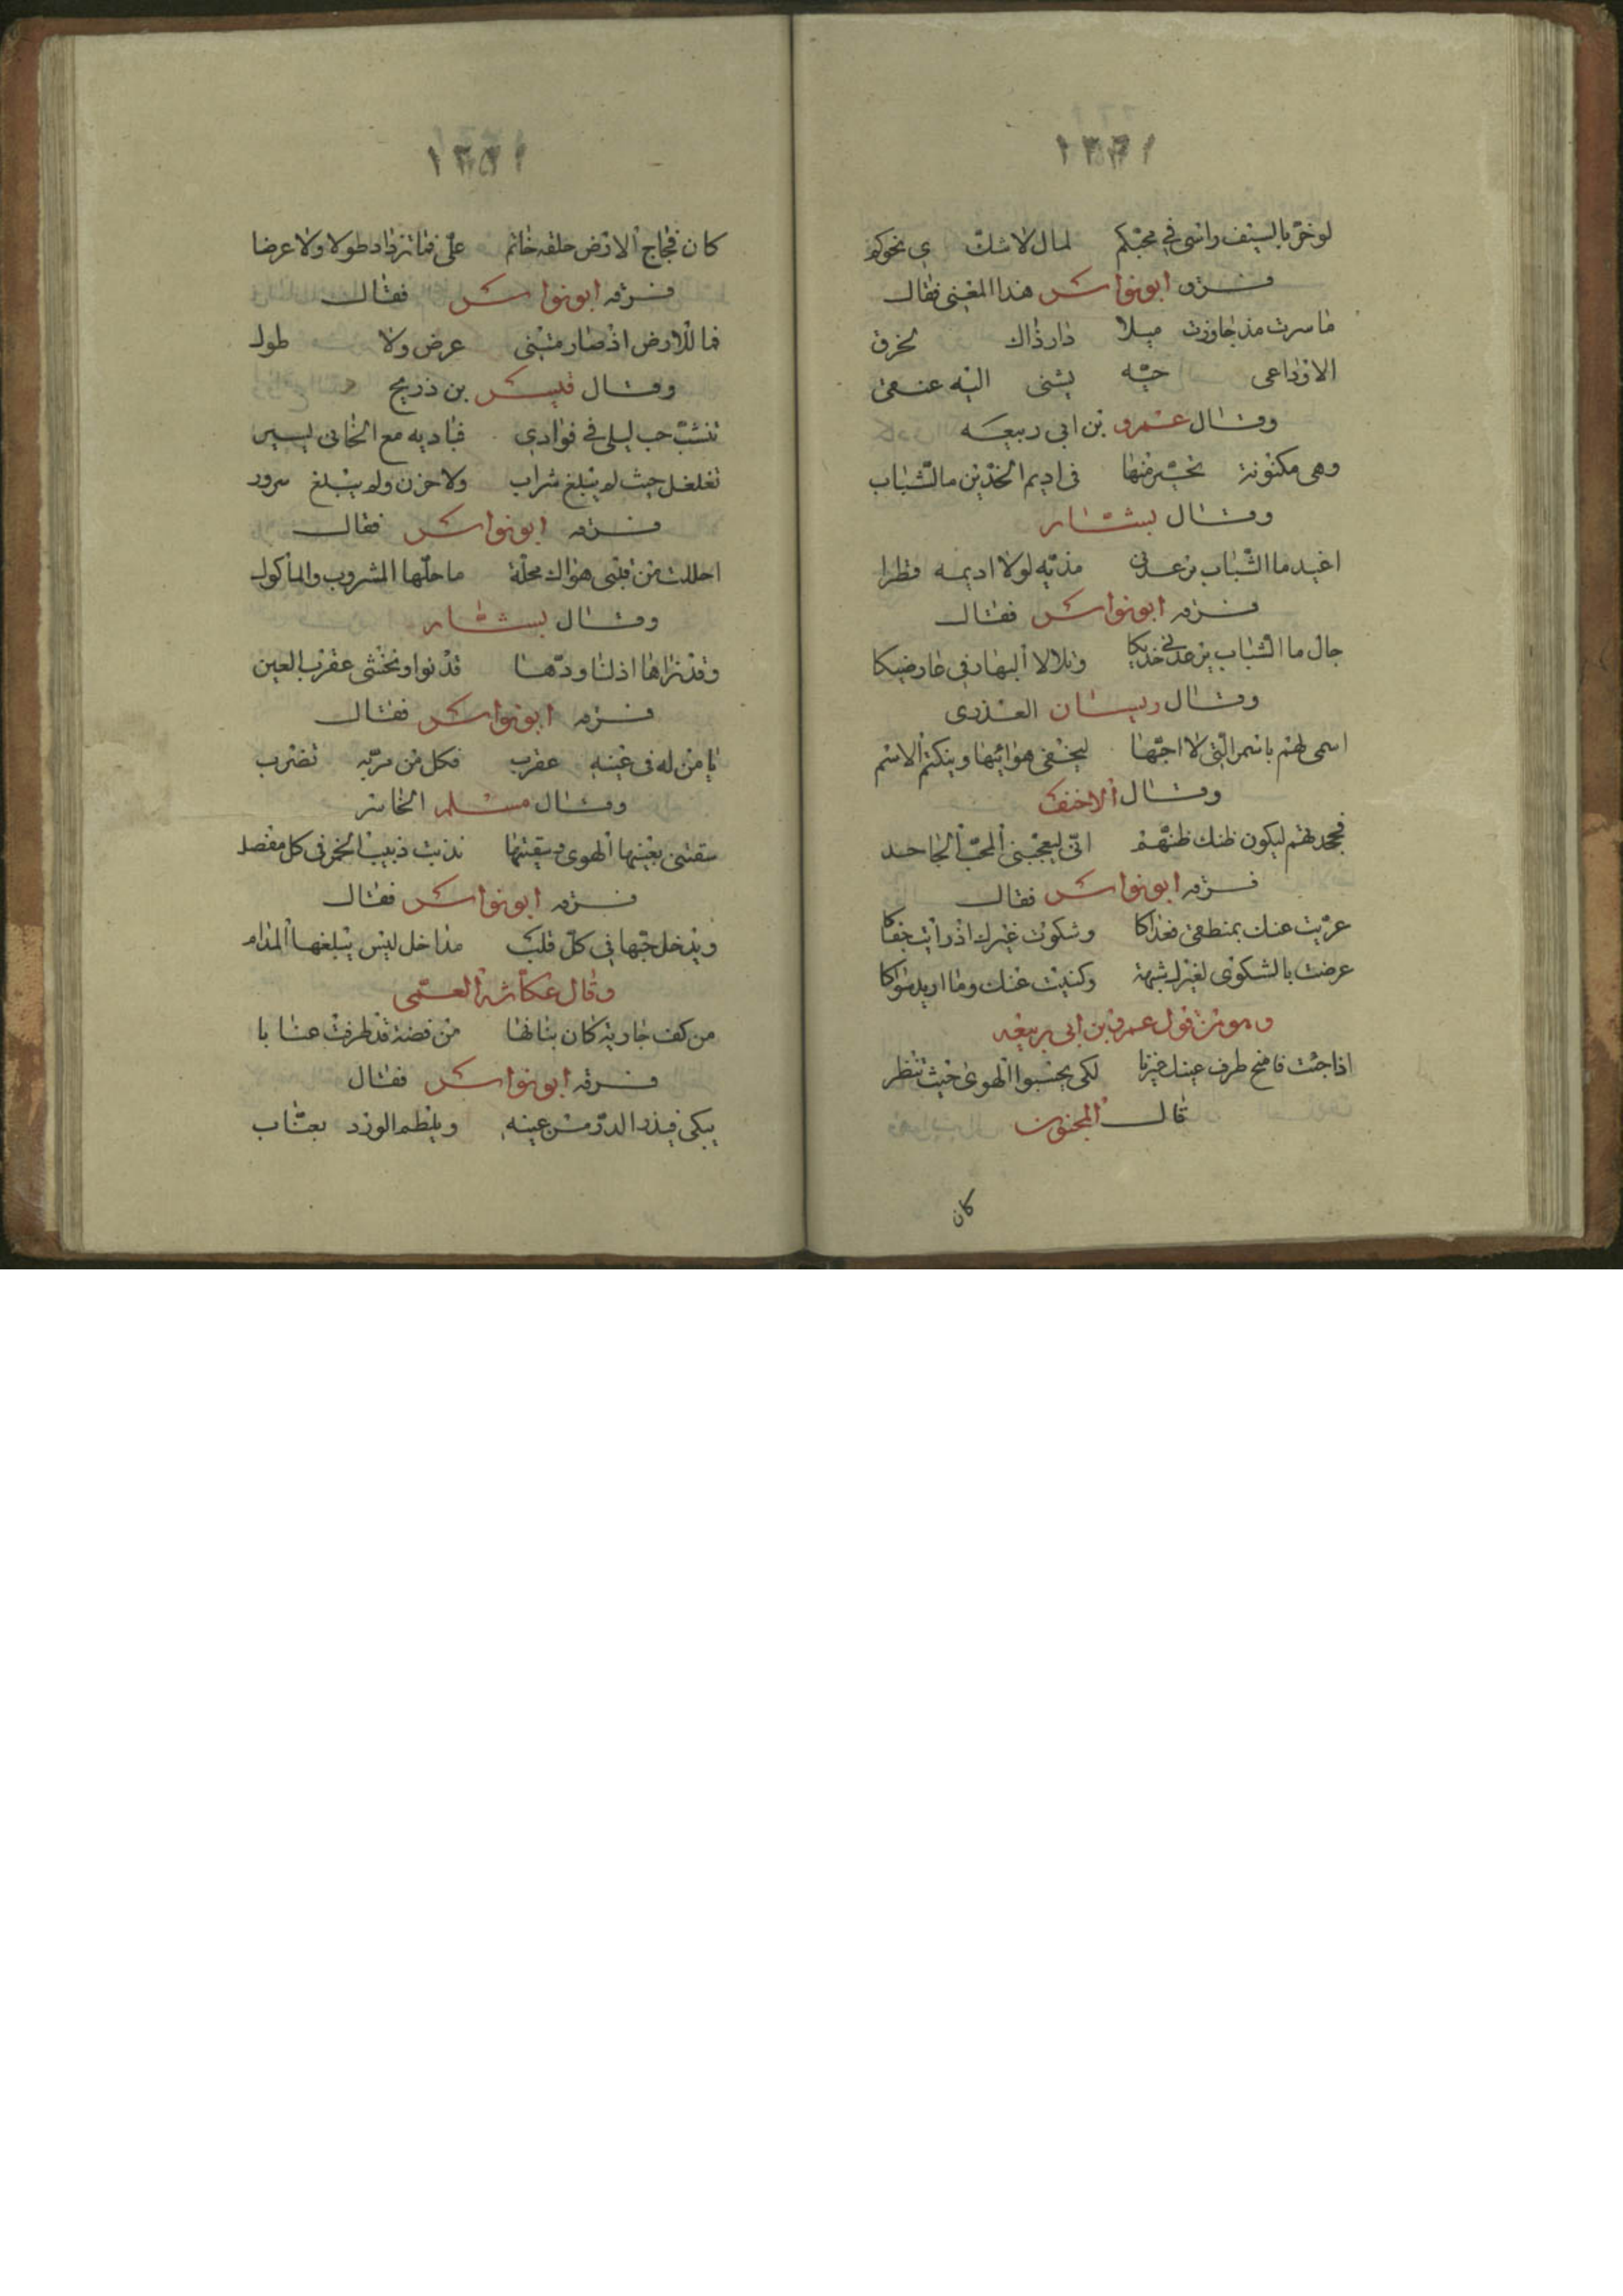 لو خرّ بالسيف راسي في محبتكم لمال لا شك ي نحوكم
سرقه ابو نواس هذا المعنى فقال
ما سرت مذ جاوزت ميلا دار ذاك
الا وداعي حبّه يثني اليه عنقي
وقال عمرو بن ابي ربيعه
وهي مكنونة تحيّر منها في اديم الخدّين ما الشباب
وقال بشار
اغيد ما الشباب يرعد في خديه لولا اديمه قطرا
سرقه ابو نواس فقال
جال ما الشباب يرعد في خديكا وتلالا البهار في عارضيكا
وقال ريسان العذرى
اسمي لهم باسم التي لا احبّها ليخفى هوائيها وينكتم الاسم
وقال الاخنف
فجحدتهم ليكون ظنك ظنّهم انّي ليعجبني المحبّ الجاحد
سرقه ابو نواس فقال
عرّيت عنك بمنطقي فعداكا وشكوت غيرك اذ رايت جفاكا
عرضت بالشكوى لغيرك شبهة وكنيت عنك وما اريد سواكا
وهو من قول عمرو بن ابي ربيعه
اذا جئت فامنح طرف عينك غيرنا لكي يحسبوا الهوى حيث تنظر
قال المجنون
كان
١٣٤١
كان فجاج الارض حلقه خاتم عليّ فما تزداد طولا ولا عرضا
سرقه ابو نواس فقال
فما للارض اذ صار متبني عرض ولا طول
وقال قيس بن ذريح
تنشبّ حب ليلى في فوادي فباديه مع الخافي يسير
تغلغل حيث لم يبلغ شراب ولا حزن ولم يبلغ سرور
سرقه ابو نواس فقال
احللت من قلبي هواك محلّة ما حلّها المشروب والمأكول
وقال بشار
وقد نراها اذ لنا ودّها تدنوا ونخشى عقرب العين
سرقه ابو نواس فقال
يا من له في عينه عقرب فكل من مرّ به تضرب
وقال مسلم الخاسر
سقتني بعينيها الهوى وسقيتها فدبّت دبيب الخمر في كل مفصل
سرقه ابو نواس فقال
ويدخل حبّها في كلّ قلب مداخل ليس يبلغها المدام
وقال عكاشه العمّي
من كف جارية كان بنانها من فضة قد طرفت عنابا
سرقه ابو نواس فقال
يبكي فيذر الدرّ من عينه ويلطم الورد بعنّاب